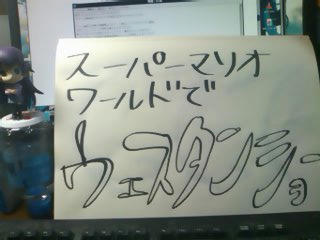 スーパーマリオ
ワールドで
ウェスタンショー